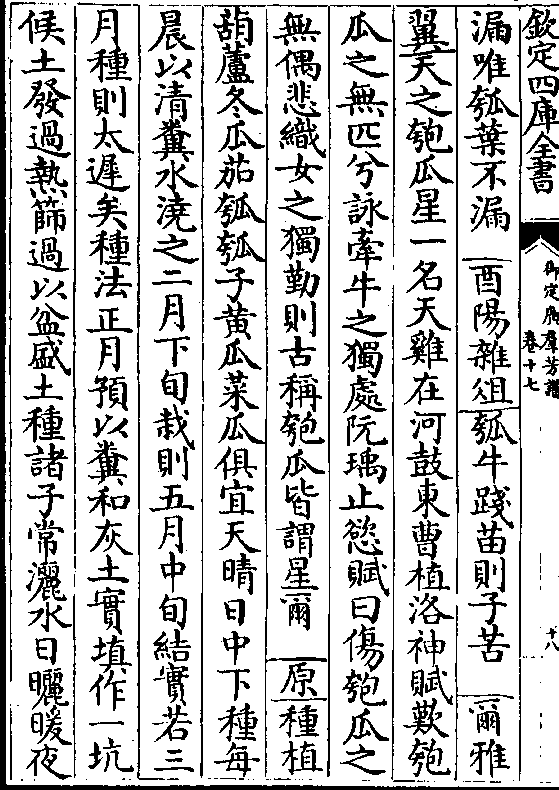 欽定四庫全書
御定佩文齋廣羣芳譜
卷十七
十八
漏唯瓠葉不漏 酉陽雜俎瓠牛踐苗則子苦 爾雅
翼天之匏瓜星一名天雞在河鼓東曹植洛神賦歎匏
瓜之無匹兮詠牽牛之獨處阮瑀止慾賦曰傷匏瓜之
無偶悲織女之獨勤則古稱匏瓜皆謂星爾 原種植
葫蘆冬瓜茄瓠瓠子黄瓜菜瓜俱宜天晴日中下種每
晨以清糞水澆之二月下旬栽則五月中旬結實若三
月種則太遲矣種法正月預以糞和灰土實填作一坑
候土發過熱篩過以盆盛土種諸子常灑水日曬暖夜